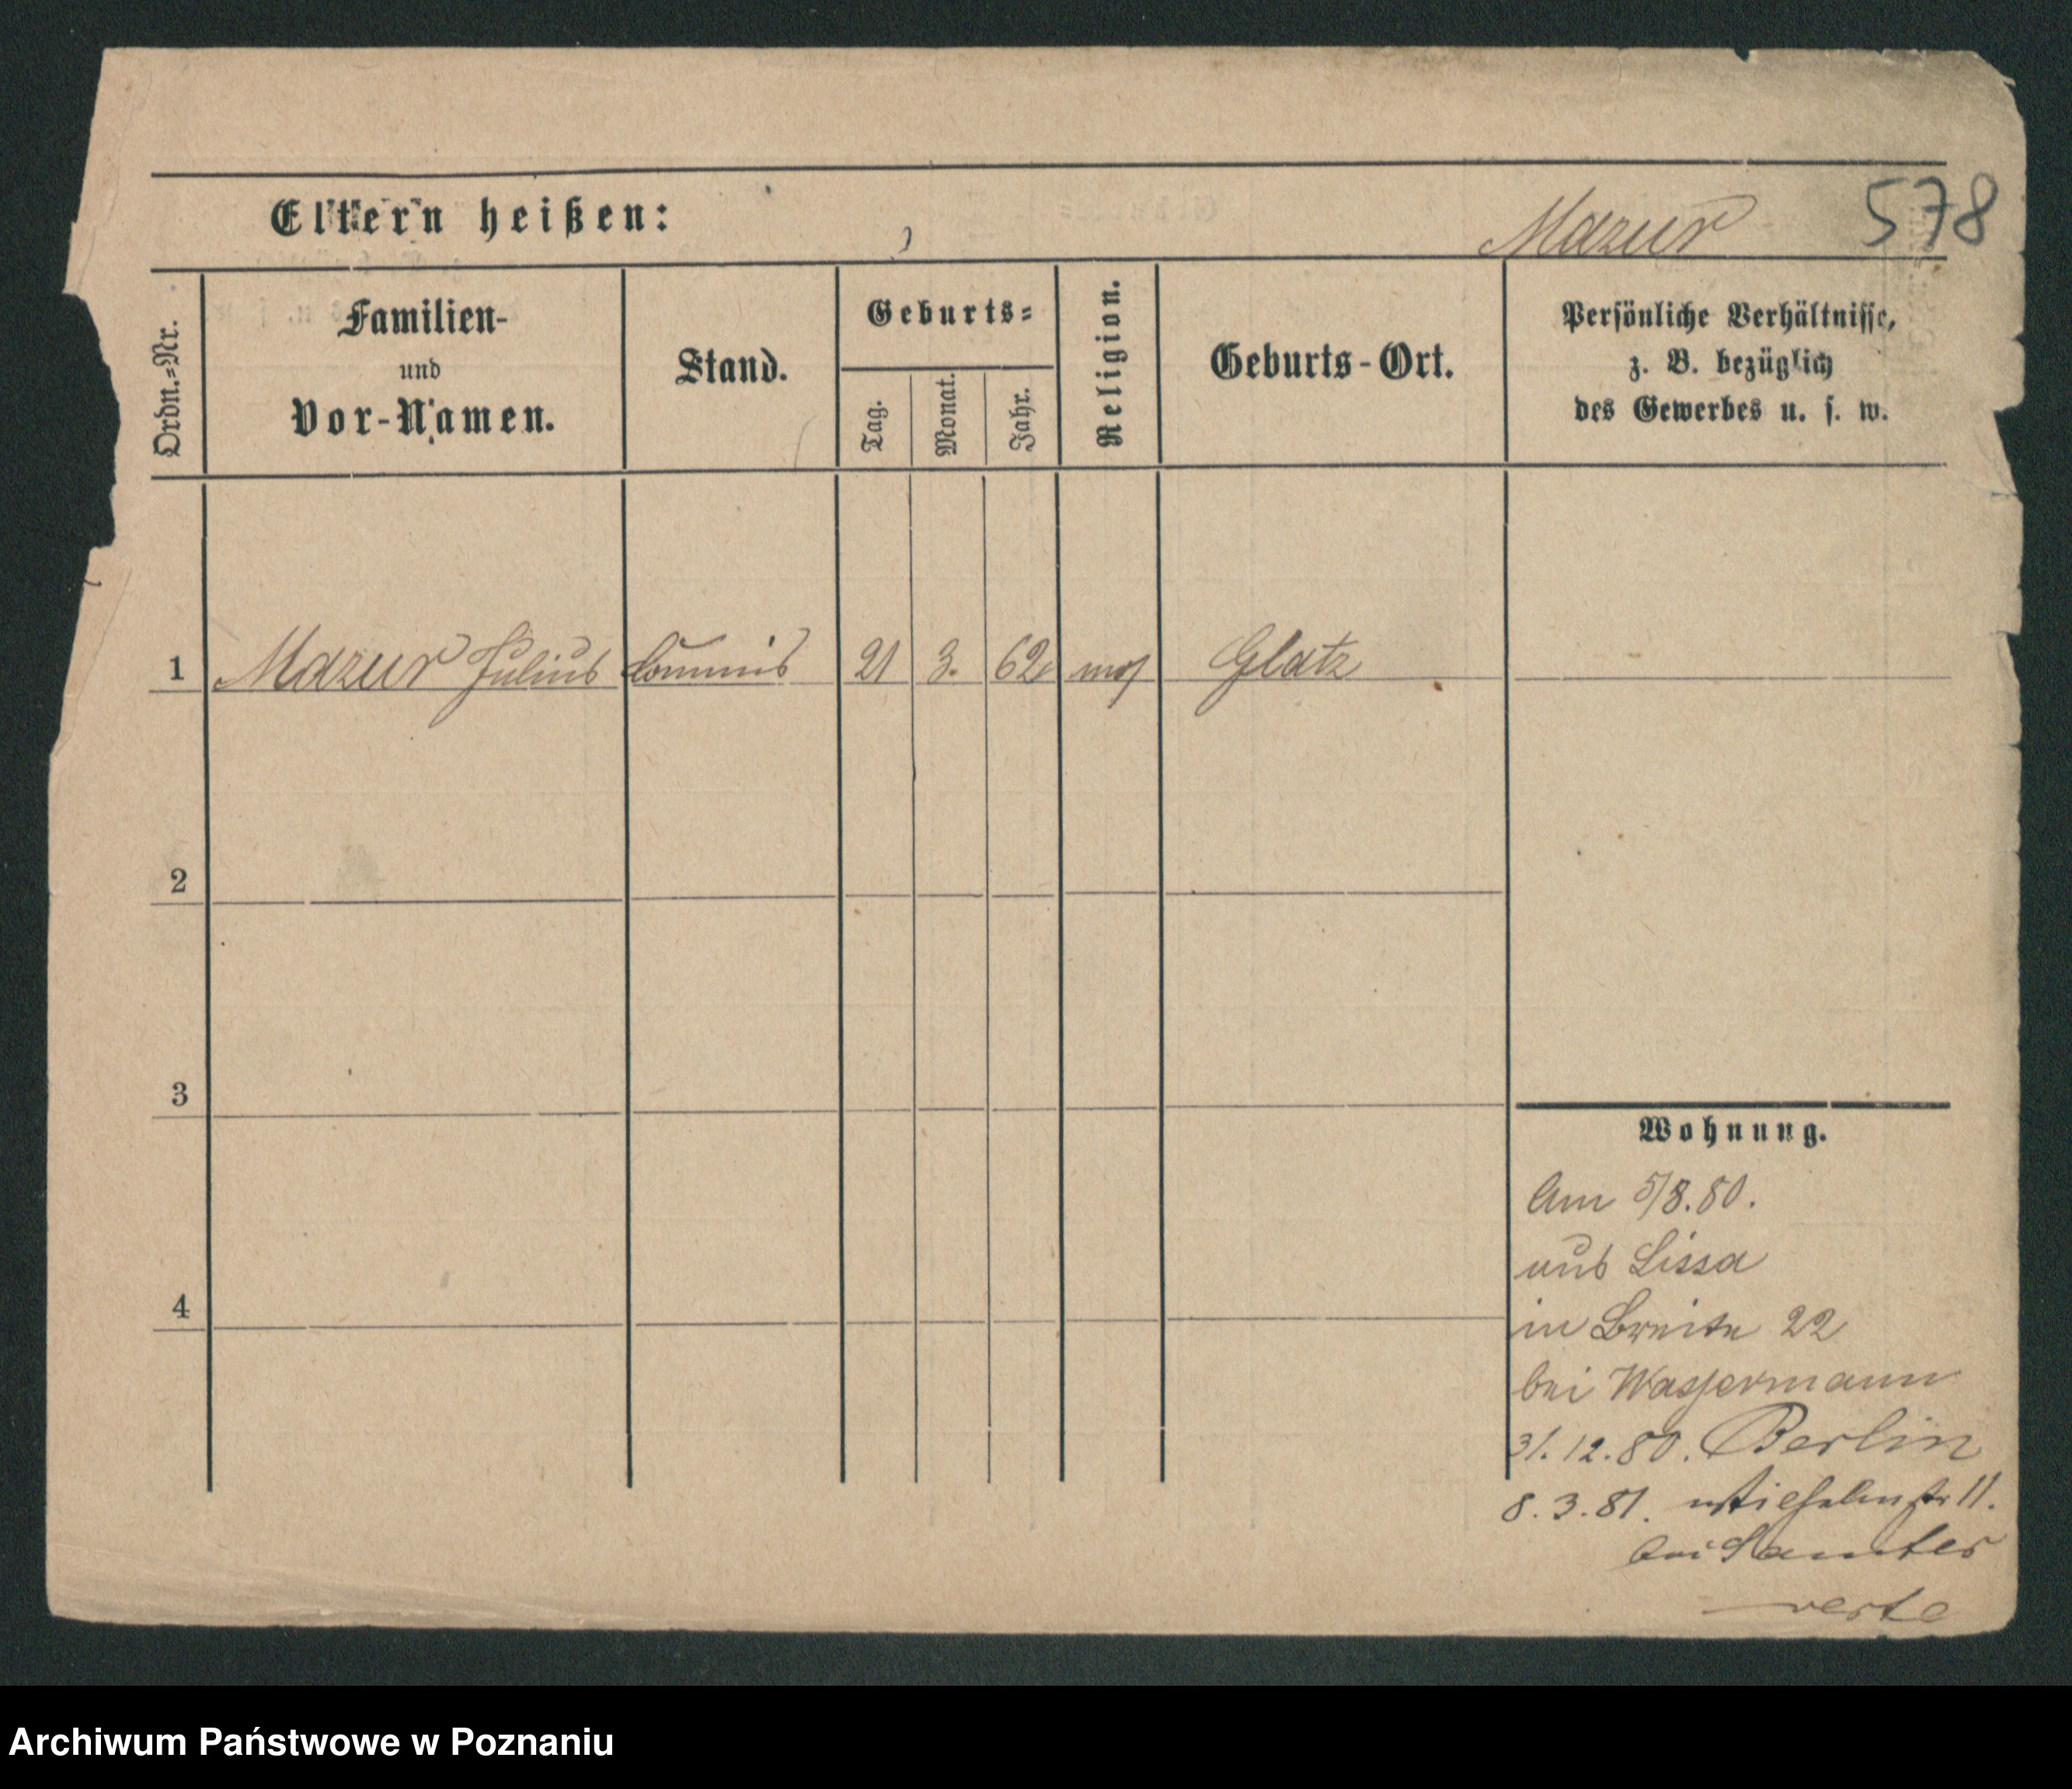 Eltern heißen:
Mazur 578
Ordn.=Nr.
Familien-
und
Vor-Namen.
Stand.
Geburts=
Tag.
Monat.
Jahr.
Religion.
Geburts-Ort.
Persönliche Verhältnisse,
z. B. bezüglich
des Gewerbes u. s. w.
1 Mazur Julius Commis 21 3. 62 mos Glatz
2
3
4
Wohnung.
Am 5/8.80.
aus Lissa
in Breite 22
bei Wassermann
31.12.80. Berlin
8.3.81. 11.
bei Samter
verte
Archiwum Państwowe w Poznaniu